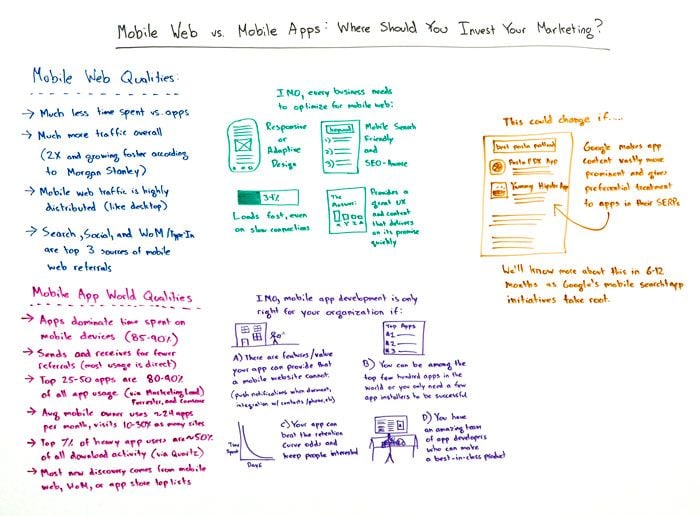 Mobile Web vs. Mobile Apps: Where Should You Invest Your Marketing?
Mobile Web Qualities:
→ Much less time spent vs. apps
→ Much more traffic overall
(2X and growing faster according
to Morgan Stanley)
→ Mobile web traffic is highly
distributed (like desktop)
→ Search, Social, and WoM/Type-In
are top 3 sources of mobile
web referrals
IMO, every business needs
to optimize for mobile web:
Responsive
or
Adaptive
Design
Keyword
1)
2)
3)
Mobile Search
Friendly
and
SEO-Aware
34%
Loads fast, even
on slow connections
The
Answer:
Provides a
great UX
and content
that delivers
on its promise
quickly
This could change if....
best pasta portland
Pasta PDX App
Yummy Hipster App
Google makes app
content vastly more
prominent and gives
preferential treatment
to apps in their SERPs
We'll know more about this in 6-12
months as Google's mobile search+app
initiatives take root.
Mobile App World Qualities
→ Apps dominate time spent on
mobile devices (85-90%)
→ Sends and receives far fewer
referrals (most usage is direct)
→ Top 25-50 apps are 80-90%
of all app usage (via Marketing Land,
Forrester, and Comscore
→ Avg mobile owner uses ~24 apps
per month, visits 10-30X as many sites
→ Top 7% of heavy app users are ~50%
of all download activity (via Quartz)
→ Most new discovery comes from mobile
web, WoM, or app store top lists
IMO, mobile app development is only
right for your organization if:
A) There are features/value
your app can provide that
a mobile website cannot
(push notifications when dormant,
integration w/ contacts/phone, etc)
Top Apps
#1
#2
#3
B) You can be among the
top few hundred apps in the
world or you only need a few
app installers to be successful
Time
Spent
Days
C) Your app can
beat the retention
curve odds and
keep people interested
D) You have
an amazing team
of app developers
who can make
a best-in-class product